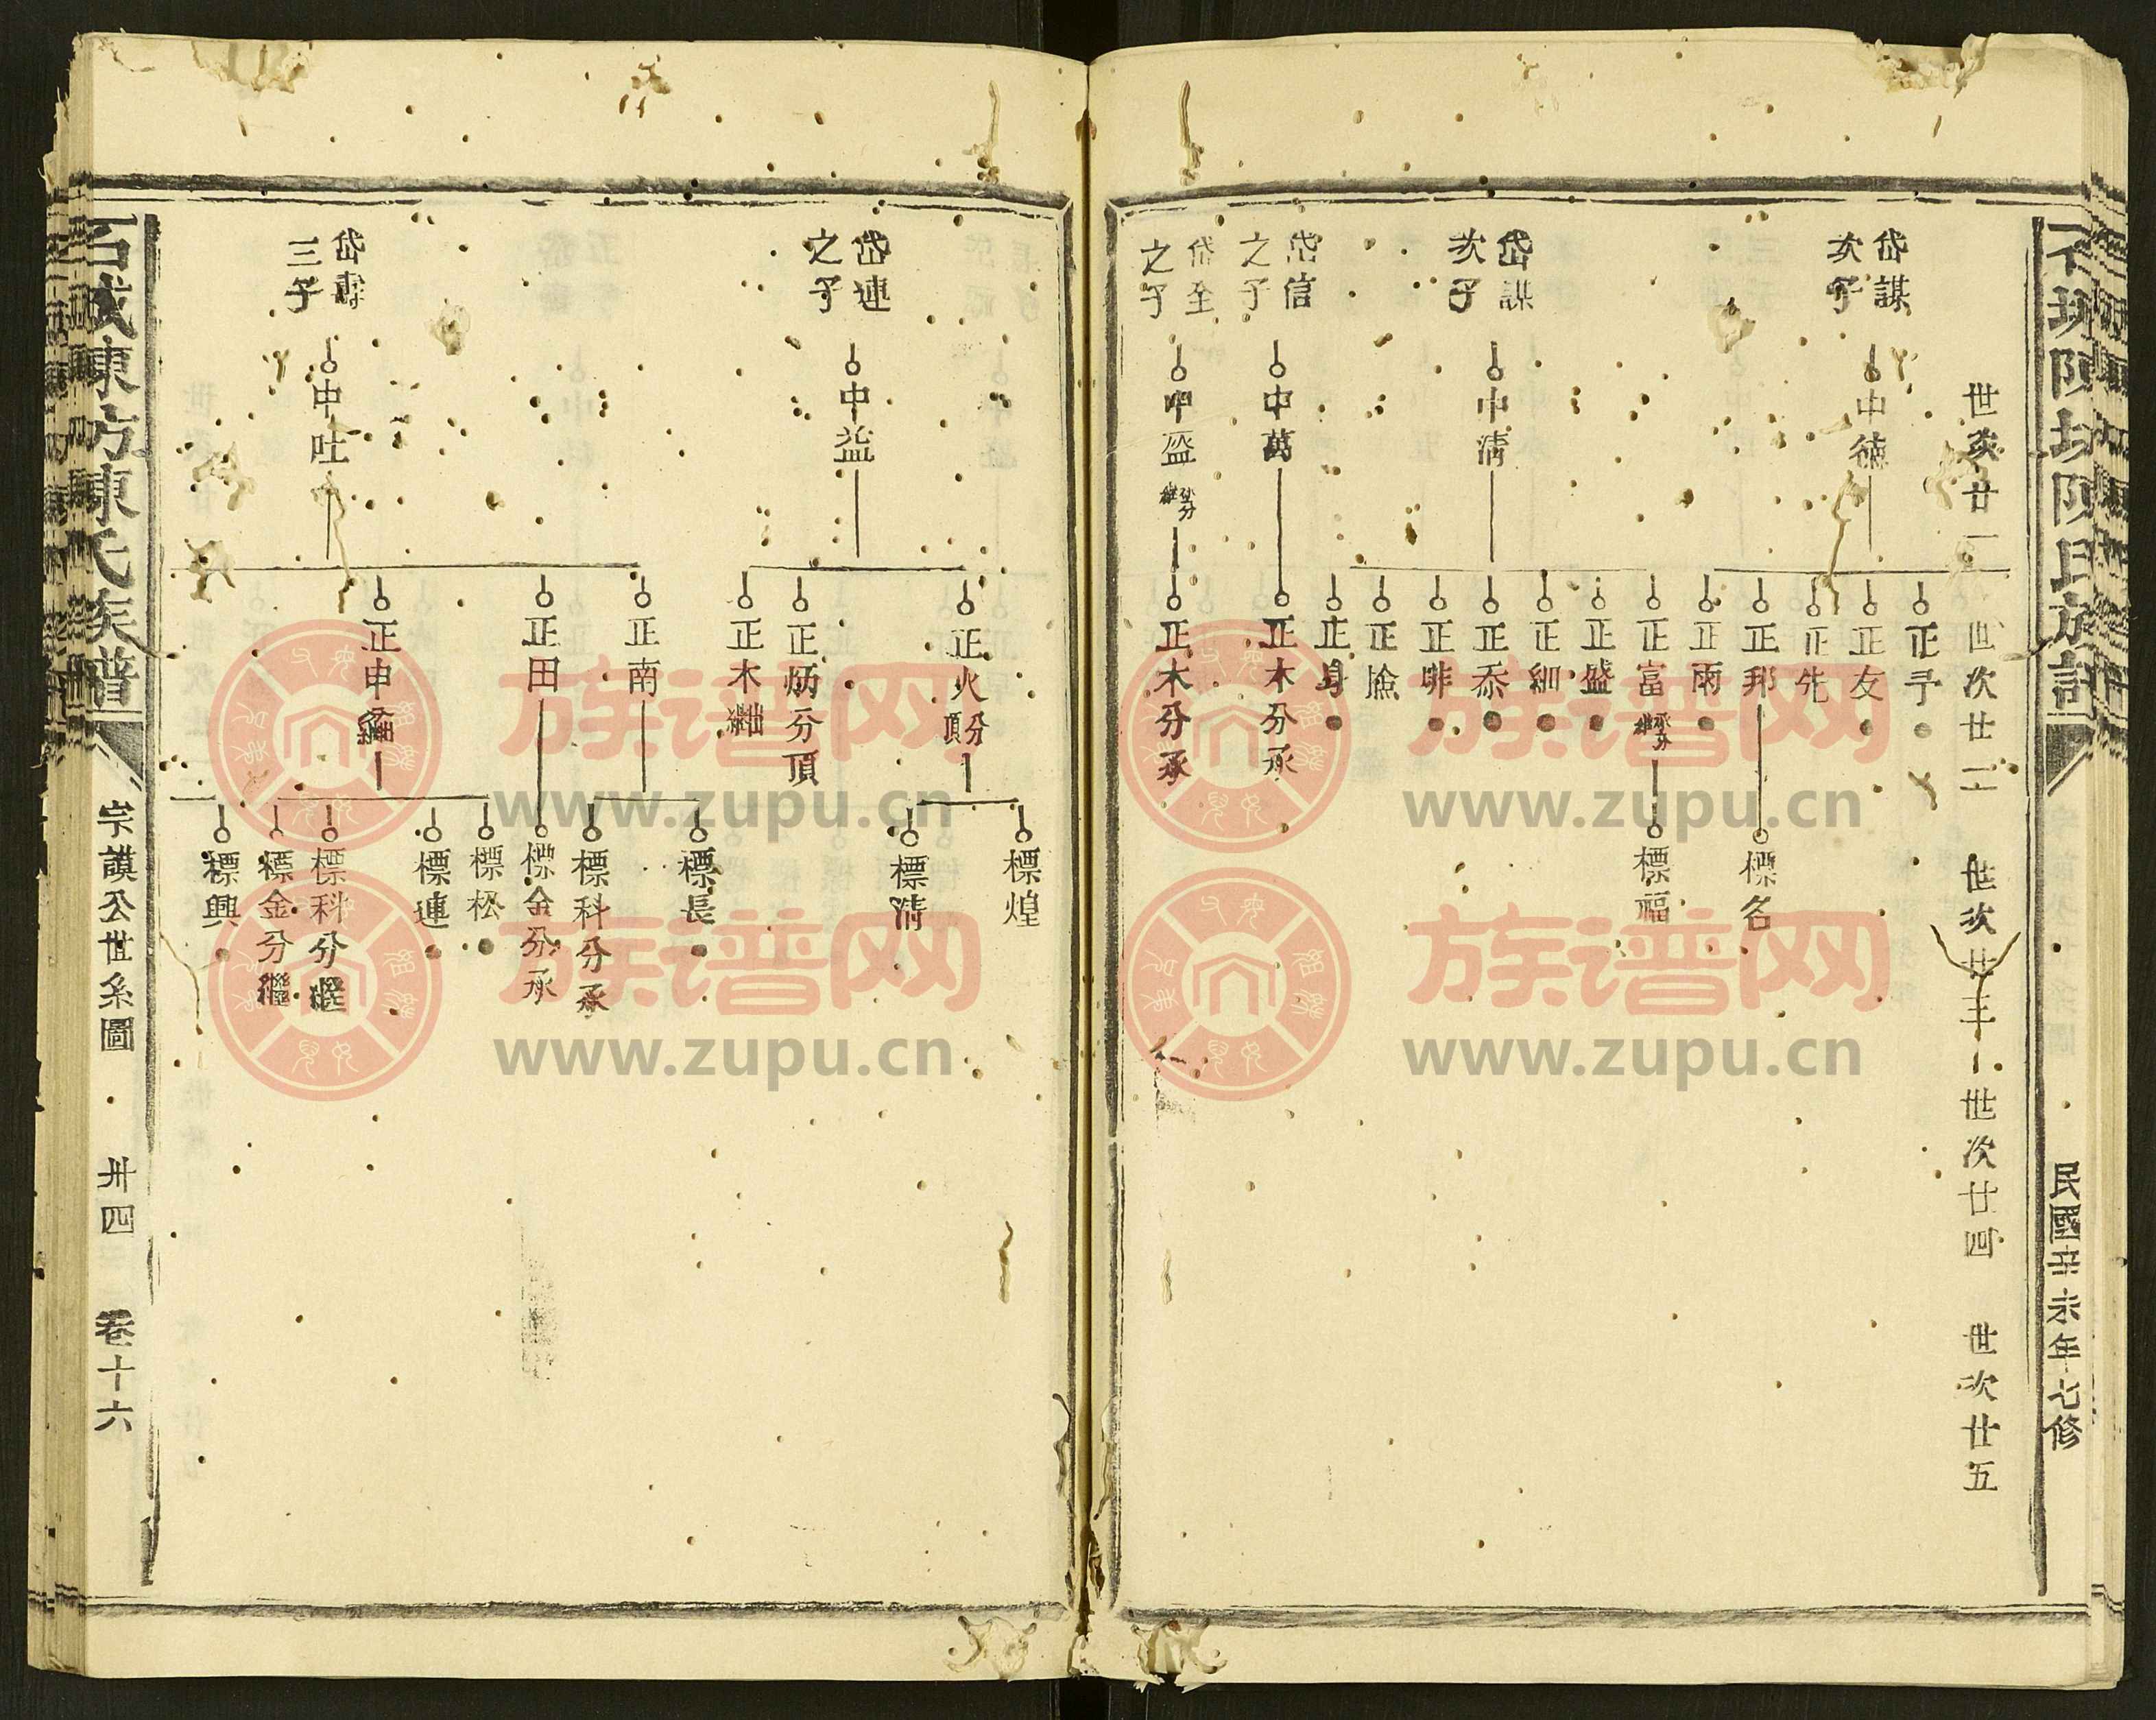 民國辛未年七修
世次廿一 世次廿二 世次廿三 世次廿四 世次廿五
岱謀次子
中德
正予
正友
正先
正邦
標名
正雨
岱謀次子
中清
正富
標福
正盛
正細
正泰
正啡
正身
岱信之子
中萬
正木分承
岱全之子
中盈
正木分承
岱連之子
中益
正火
標煌
標清
正炳分頂
正木
三子
中吐
正南
標長
標科分承
正田
標金分承
正申
標松
標連
標科分繼
標金分繼
標興
石城陳坊陳氏族譜
宗謨公世系圖
卅四
卷十六
族谱网
www.zupu.cn
族谱网
www.zupu.cn
族谱网
www.zupu.cn
族谱网
www.zupu.cn